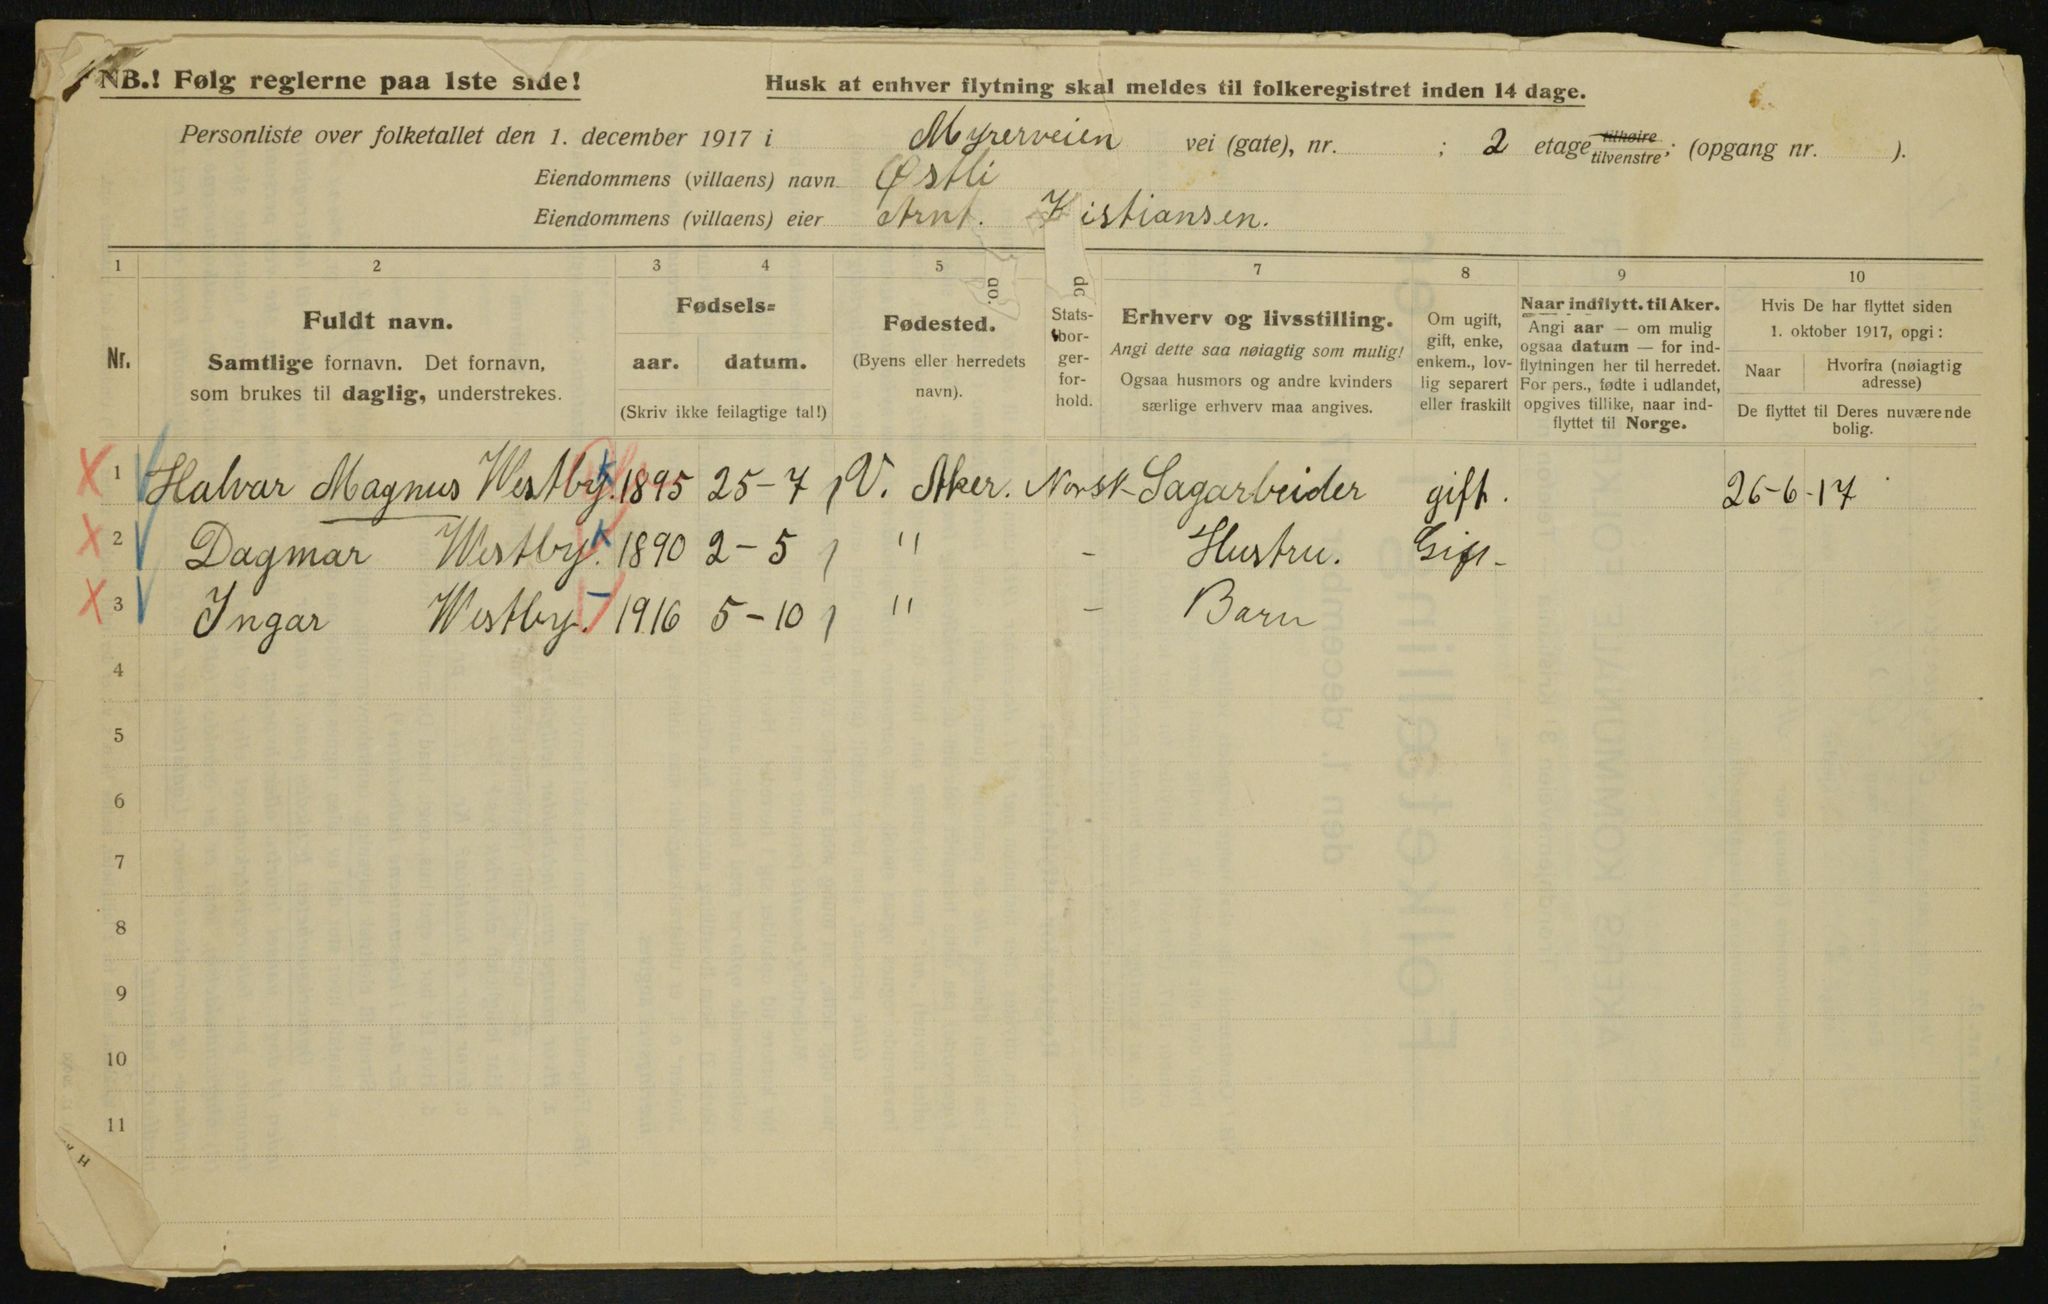 NB.! Følg reglerne paa 1ste side!
Husk at enhver flytning skal meldes til folkeregistret inden 14 dage.
Personliste over folketallet den 1. december 1917 i Myrerveien vei (gate), nr. ; 2 etage tilhøire tilvenstre; (opgang nr. ).
Eiendommens (villaens) navn Østli
Eiendommens (villaens) eier Arnt. Kistiansen.
1 2 3 4 5 7 8 9 10
Nr.
Fuldt navn.
Samtlige fornavn. Det fornavn,
som brukes til daglig, understrekes.
Fødsels=
aar. datum.
(Skriv ikke feilagtige tal!)
Fødested.
(Byens eller herredets
navn).
ao.
dc
Stats-
bor-
ger-
for-
hold.
Erhverv og livsstilling.
Angi dette saa nøiagtig som mulig!
Ogsaa husmors og andre kvinders
særlige erhverv maa angives.
Om ugift,
gift, enke,
enkem., lov-
lig separert
eller fraskilt
Naar indflytt. til Aker.
Angi aar — om mulig
ogsaa datum — for ind-
flytningen her til herredet.
For pers., fødte i udlandet,
opgives tillike, naar ind-
flyttet til Norge.
Hvis De har flyttet siden
1. oktober 1917, opgi:
Naar
Hvorfra (nøiagtig
adresse)
De flyttet til Deres nuværende
bolig.
1 Halvar Magnus Westby. 1895 25-7 V. Aker. Norsk Sagarbeider gift. 26-6-17
2 Dagmar Westby. 1890 2-5 " - Hustru. Gift-
3 Ingar Westby. 1916 5-10 " - Barn
4
5
6
7
8
9
10
11